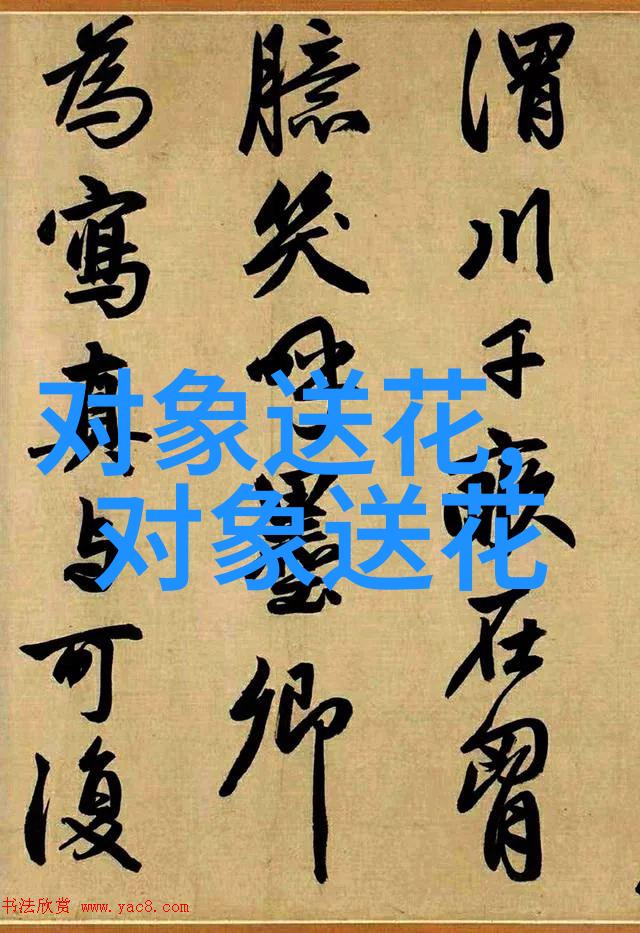 渭川千畝在胷
臆笑呼墨卿
為寫真与可復
对象送花,
对象送花
书法欣赏 www.yac8.com